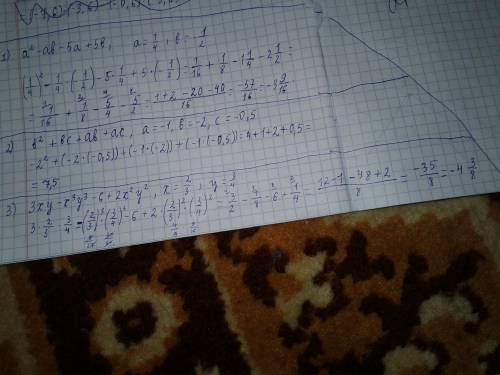 1) a² - ab - 5a + 5b, a = 1/4, b = -1/2
(1/4)² - 1/4 · (-1/2) - 5 · 1/4 + 5 ·
= 1/16 + 1/8 - 5/4 - 5/2 = (1+2-20-40)/16 = -57/16 = -3 9/16
2) b² + bc + ab + ac, a = -1, b = -2, c = -0,5
-2² + (-2 · (-0,5)) + (-1 · (-2)) + (-1 · (-0,5)) = 4 + 1 + 2 + 0,5 =
= 7,5
3) 3xy - x³y³ - 6 + 2x²y², x = 2/3, y = 3/4
3 · 2/3 · 3/4 - (2/3)³ (3/4)³ - 6 + 2 · (2/3)² · (3/4)² = 3/2 - 1/8 - 6 + 1/4 = = -35/8 = -4 3/8